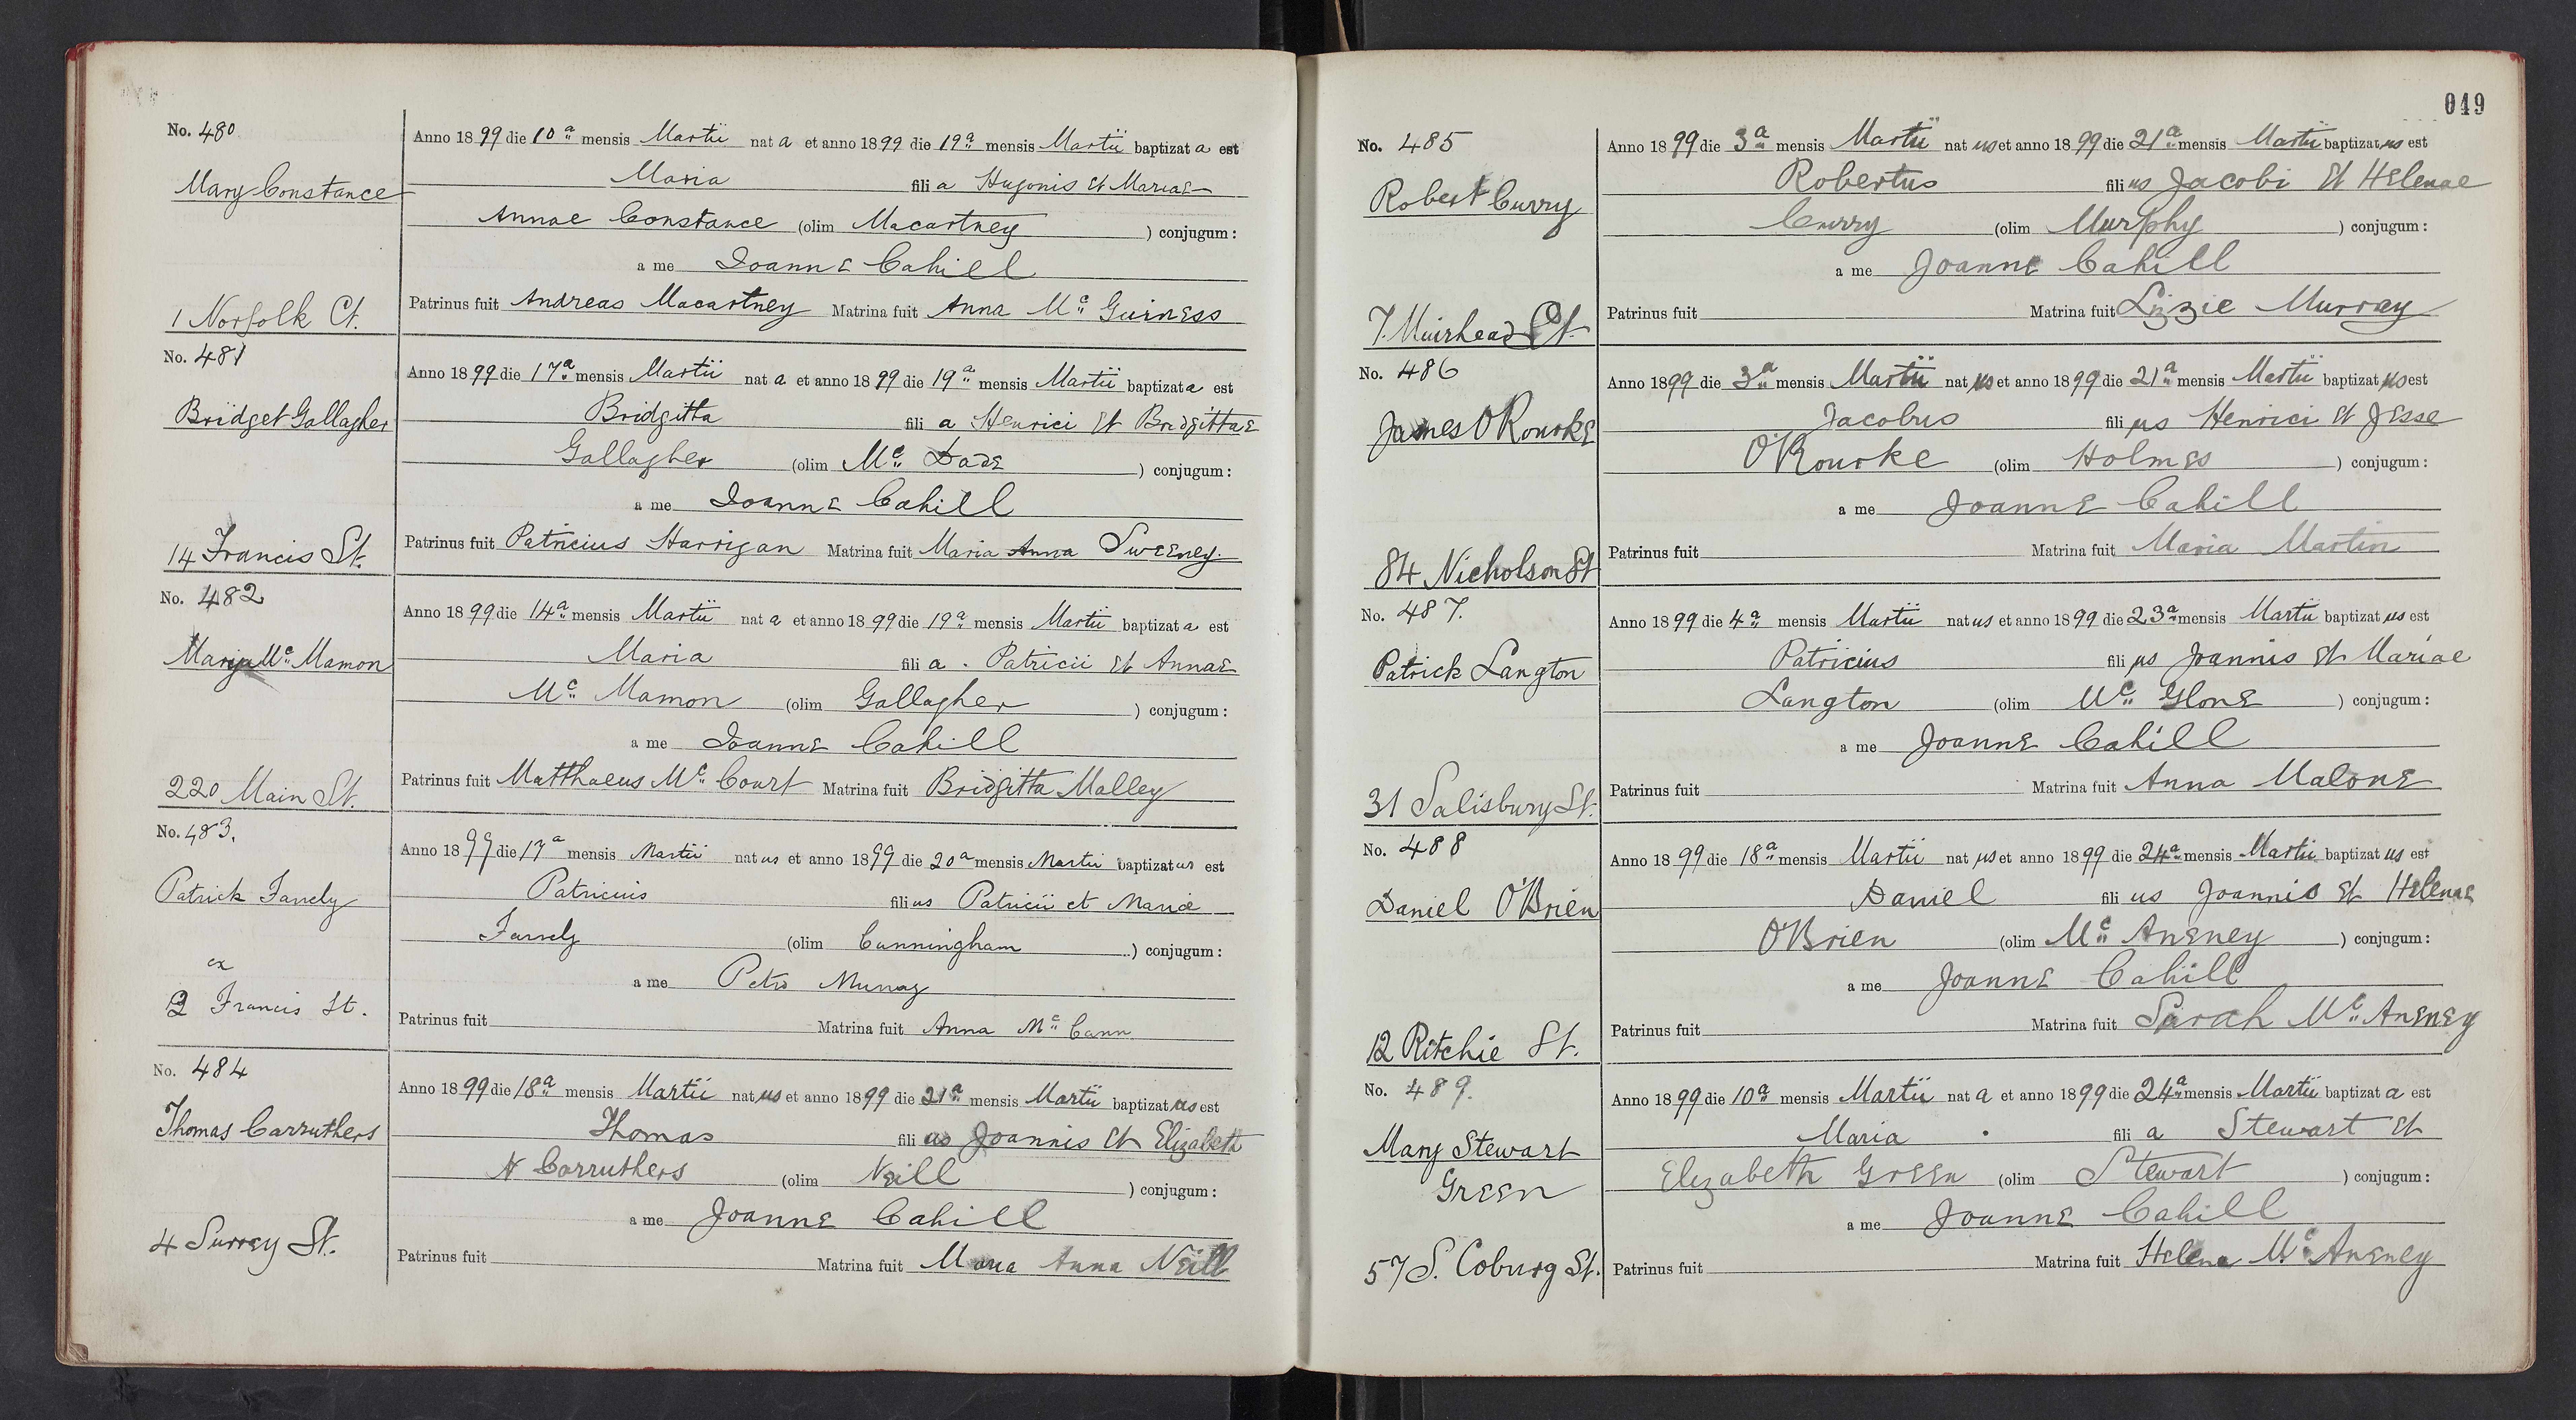 No. 480
Mary Constance
1 Norfolk Ct.
Anno 1899 die 10a mensis Martii nata et anno 1899 die 19a mensis Martii baptizata est
Maria filia Hugonis et Mariae
Annae Constance (olim Macartney) conjugum:
a me Joanne Cahill
Patrinus fuit Andreas Macartney Matrina fuit Anna Mc Guiness
No. 481
Bridget Gallagher
14 Francis St.
Anno 1899 die 17a mensis Martii nata et anno 1899 die 19a mensis Martii baptizata est
Bridgitta filia Henrici et Bridgittae
Gallagher (olim Mc Dade) conjugum:
a me Joanne Cahill
Patrinus fuit Patricius Harrigan Matrina fuit Maria Anna Sweeney.
No. 482
Mary Mc Mamon
220 Main St.
Anno 1899 die 14a mensis Martii nata et anno 1899 die 19a mensis Martii baptizata est
Maria filia. Patricii et Annae
Mc Mamon (olim Gallagher) conjugum:
a me Joanne Cahill
Patrinus fuit Matthaeus Mc Court Matrina fuit Bridgitta Malley
No. 483.
Patrick
ex
2 Francis St.
Anno 1899 die 17a mensis Martii natus et anno 1899 die 20a mensis Martii baptizatus est
Patricius filius Patricii et Mariae
(olim Cunningham) conjugum:
a me Petro Murray
Patrinus fuit Matrina fuit Anna Mc Cann
No. 484
Thomas Carruthers
4 Surrey St.
Anno 1899 die 18a mensis Martii natus et anno 1899 die 21a mensis Martii baptizatus est
Thomas filius Joannis et Elizabeth
Carruthers (olim Neill) conjugum:
a me Joanne Cahill
Patrinus fuit Matrina fuit Maria Anna Neill
049
No. 485
Robert Curry
7. Muirhead St.
Anno 1899 die 3a mensis Martii natus et anno 1899 die 21a mensis Martii baptizatus est
Robertus filius Jacobi et Helenae
Curry (olim Murphy) conjugum:
a me Joanne Cahill
Patrinus fuit Matrina fuit Lizzie Murray
No. 486
James O'Rourke
84 Nicholson St
Anno 1899 die 3a mensis Martii natus et anno 1899 die 21a mensis Martii baptizatus est
Jacobus filius Henrici et Jesse
O'Rourke (olim Holmes) conjugum:
a me Joanne Cahill
Patrinus fuit Matrina fuit Maria Martin
No. 487.
Patrick Langton
31 Salisbury St.
Anno 1899 die 4a mensis Martii natus et anno 1899 die 23a mensis Martii baptizatus est
Patricius filius Joannis et Mariae
Langton (olim Mc Glone) conjugum:
a me Joanne Cahill
Patrinus fuit Matrina fuit Anna Malone
No. 488
Daniel O'Brien
12 Ritchie St.
Anno 1899 die 18a mensis Martii natus et anno 1899 die 24a mensis Martii baptizatus est
Daniel filius Joannis et Helenae
O'Brien (olim Mc Aneney) conjugum:
a me Joanne Cahill
Patrinus fuit Matrina fuit Sarah Mc Aneney
No. 489.
Mary Stewart
Green
57 S. Coburg St.
Anno 1899 die 10a mensis Martii nata et anno 1899 die 24a mensis Martii baptizata est
Maria filia Stewart et
Elizabeth Green (olim Stewart) conjugum:
a me Joanne Cahill
Patrinus fuit Matrina fuit Helena Mc Aneney